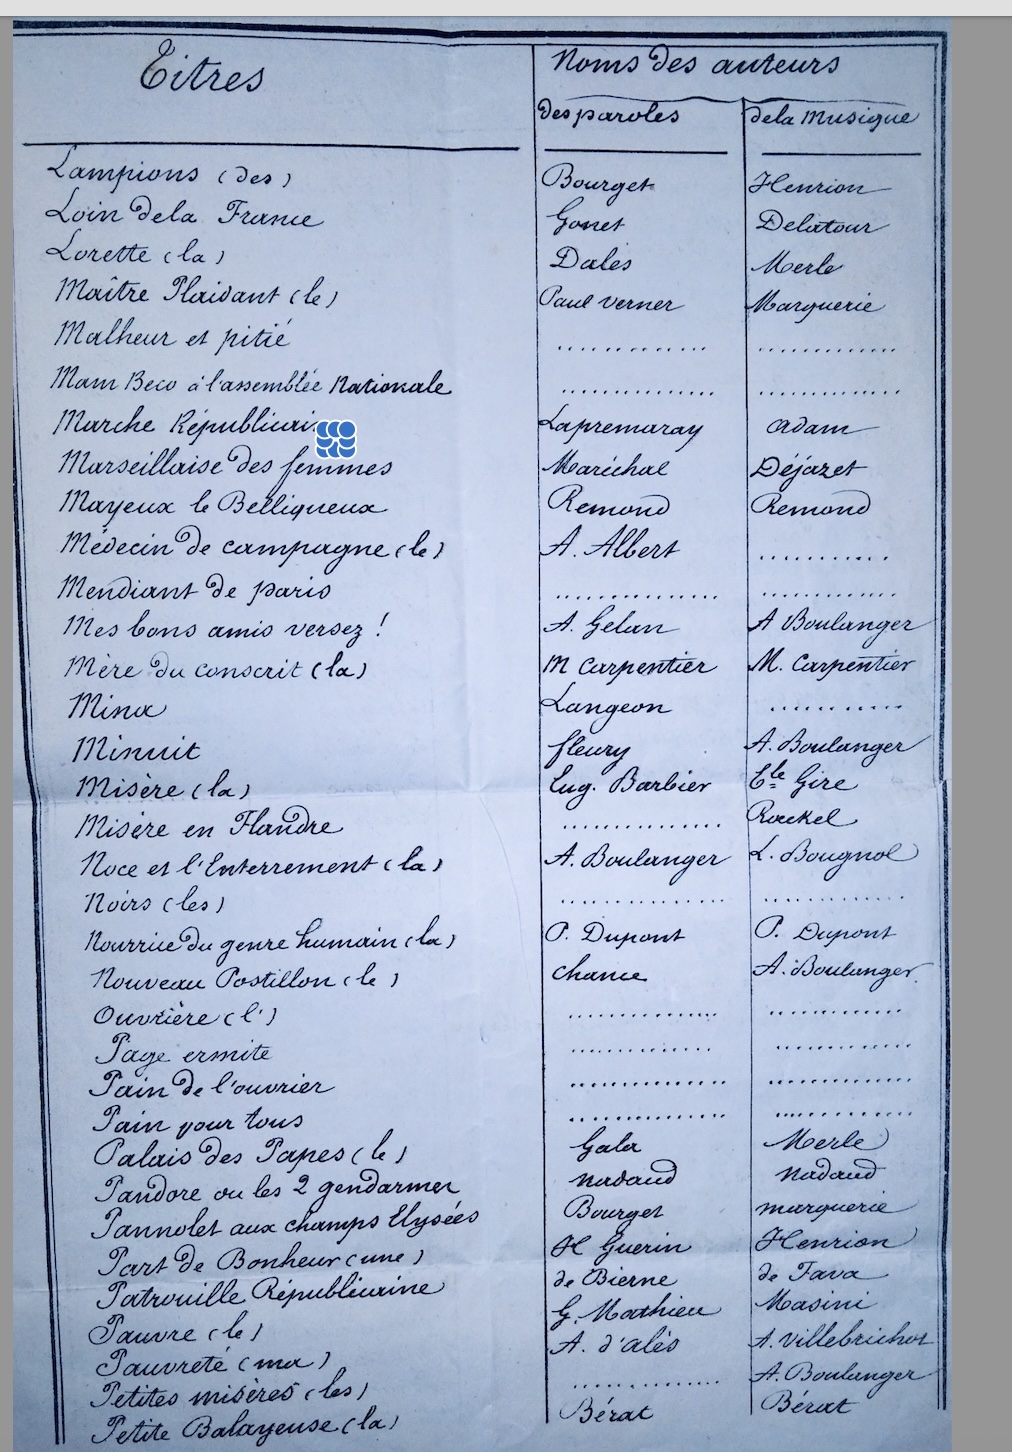 Titres
Noms des auteurs
des paroles dela Musique
Lampions (des) Bourget Henrion
Loin dela France Gonet Delatour
Lorette (la) Dalès Merle
Maître Plaidant (le) Paul verner Marguerie
Malheur et pitié .............. ..............
Mam Beco à l'assemblée Nationale .............. ..............
Marche Républicai Lapremaray Adam
Marseillaise des femmes Maréchal Déjazet
Mayeux le Belliqueux Remond Remond
Médecin de campagne (le) A. Albert ............
Mendiant de paris ................ ..............
Mes bons amis versez ! A. Gelan A Boulanger
Mère du conscrit (la) M Carpentier M. Carpentier
Mina Langeon ............
Minuit fleury A. Boulanger
Misère (la) Eug. Barbier Gire
Misère en Flandre ................ Rackel
Noce et l'Enterrement (la) A. Boulanger L. Bougnol
Noirs (les) ................ ..............
Nourrice du genre humain (la) P. Dupont P. Dupont
Nouveau Postillon (le) chance A. Boulanger
Ouvrière (l') ................ ..............
Page ermite .............. ..............
Pain de l'ouvrier ................ ..............
Pain pour tous ................ ..............
Palais des Papes (le) Gala Merle
Pandore ou les 2 gendarmes nadaud nadaud
Pannolet aux champs Elysées Bourget marguerie
Part de Bonheur (une) H Guerin Henrion
Patrouille Républicaine de Bierne de Fava
Pauvre (le) G. Mathieu Masini
Pauvreté (ma) A. d'alès A. Villebichot
Petites misères (les) ................ A. Boulanger
Petite Balayeuse (la) Bérat Bérat